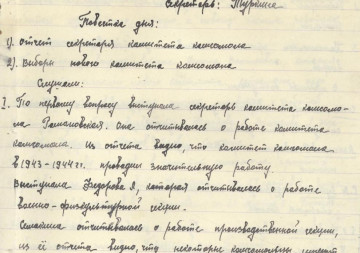 Секретарь: Туркина
Повестка дня:
1) Отчет секретаря комитета комсомола
2) Выборы нового комитета комсомола
Слушали:
I. По первому вопросу выступила секретарь комитета комсомо-
ла Романовская. Она отчитывалась о работе комитета
комсомола. Из отчета видно, что комитет комсомола
в 1943-1944 гг. проводил значительную работу.
Выступила Федорова Я, которая отчитывалась о работе
военно-физкультурной секции.
отчитывалась о работе производственной секции,
из её отчета видно, что некоторые комсомольцы имеют